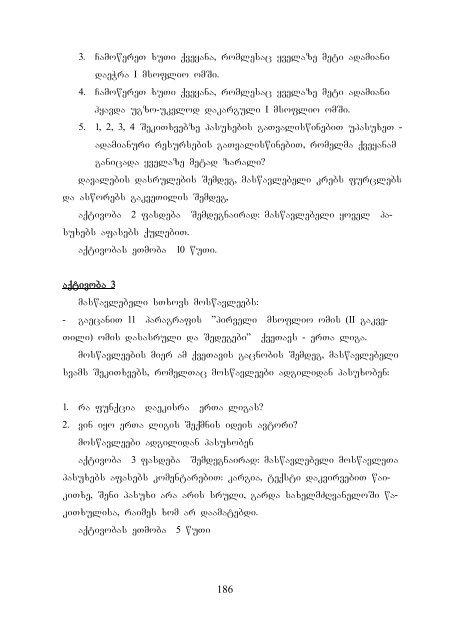 3. ჩამოწერეთ ხუთი ქვეყანა, რომლესაც ყველაზე მეტი ადამიანი
დაეჭრა I მსოფლიო ომში.
4. ჩამოწერეთ ხუთი ქვეყანა, რომლესაც ყველაზე მეტი ადამიანი
ჰყავდა უგზო-უკვლოდ დაკარგული I მსოფლიო ომში.
5. 1, 2, 3, 4 შეკითხვებზე პასუხების გათვალისწინებით უპასუხეთ -
ადამიანური რესურსების გათვალისწინებით, რომელმა ქვეყანამ
განიცადა ყველაზე მეტად ზარალი?
დავალების დასრულების შემდეგ, მასწავლებელი კრებს ფურცლებს
და ასწორებს გაკვეთილის შემდეგ,
აქტივობა 2 ფასდება შემდეგნაირად: მასწავლებელი ყოველ პა-
სუხებს აფასებს ქულებით.
აქტივობას ეთმობა 10 წუთი.
აქტივობა 3
მასწავლებელი სთხოვს მოსწავლეებს:
- გაეცანით 11 პარაგრაფის "პირველი მსოფლიო ომის (II გაკვე-
თილი) ომის დასასრული და შედეგები" ქვეთავს - ერთა ლიგა.
მოსწავლეების მიერ ამ ქვეთავის გაცნობის შემდეგ, მასწავლებელი
სვამს შეკითხვებს, რომელთაც მოსწავლეები ადგილიდან პასუხობენ:
1. რა ფუნქცია დაეკისრა ერთა ლიგას?
2. ვინ იყო ერთა ლიგის შექმნის იდეის ავტორი?
მოსწავლეები ადგილიდან პასუხობენ
აქტივობა 3 ფასდება შემდეგნაირად: მასწავლებელი მოსწავლეთა
პასუხებს აფასებს კომენტარებით: კარგია, ტექსტი დაკვირვებით წაი-
კითხე, შენი პასუხი არა არის სრული, გარდა სახელმძღვანელოში წა-
კითხულისა, რაიმეს ხომ არ დაამატებდი.
აქტივობას ეთმობა 5 წუთი
186